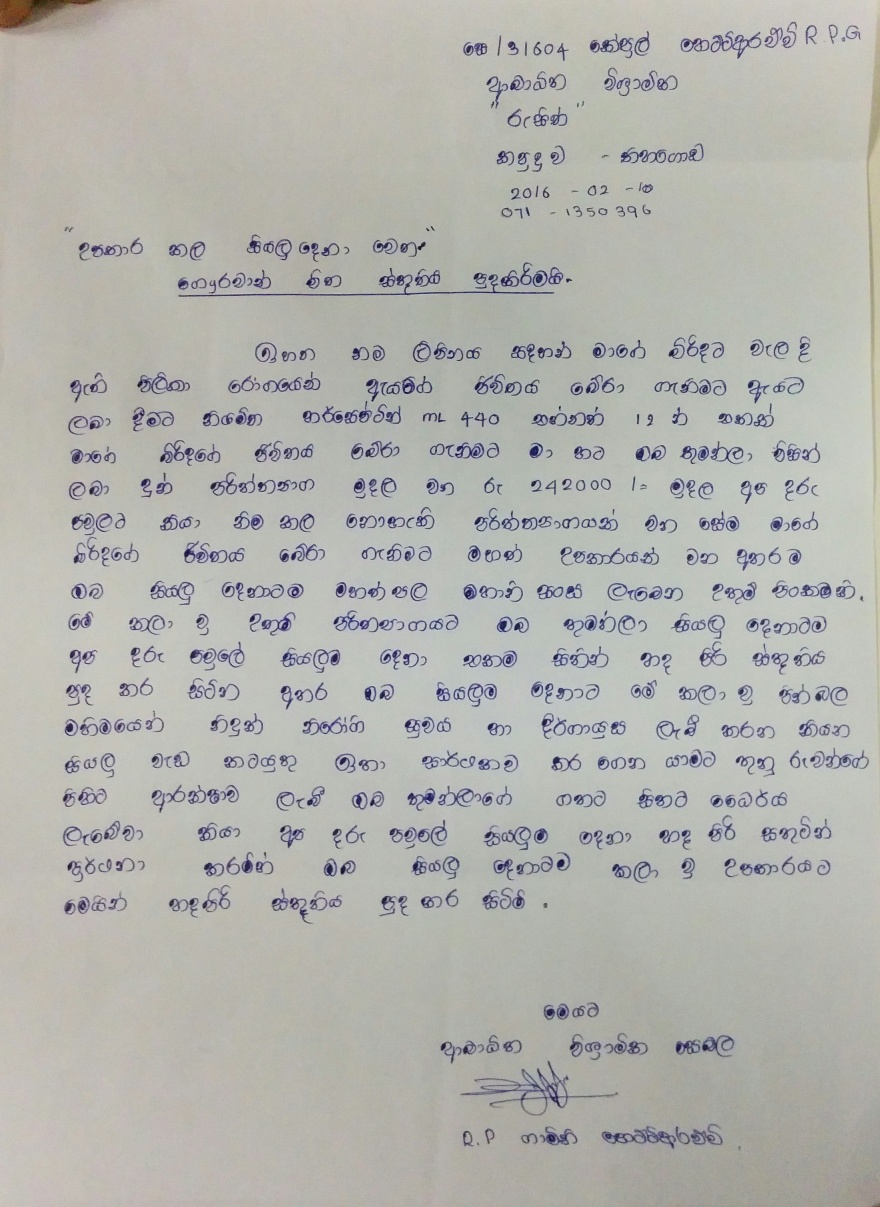 සෙ/31604 කෝප්‍රල් හෙට්ටිආරච්චි R.P.G
ආබාධිත විශ්‍රාමික
"රුසිත්"
කපුදූව - තිහගොඩ
2016 - 02 - 10
071 - 1350396
"උපකාර කල සියලු දෙනා වෙත"
ගෞරවාන් විත ස්තූතිය පුදකිරිමයි.
ඉහත නම ලිපිනය සඳහන් මාගේ බිරිදට වැල දි
ඇති පිලිකා රෝගයෙන් ඇයගේ ජිවිතය බේරා ගැනිමට ඇයට
ලබා දීමට නියමිත හර්සෙප්ටින් mL 440 එන්නත් 12 ත් සඳහා
මාගේ බිරිදගේ ජිවිතය බේරා ගැනිමට මා හට ඔබ තුමන්ලා විසින්
ලබා දුන් පරිත්‍යාග මුදල වන රු 242000/= මුදල අප දරු
පවුලට කියා නිම කල නොහැකි පරිත්‍යාගයක් වන සේම මාගේ
බිරිදගේ ජිවිතය බේරා ගැනිමට මහත් උපකාරයක් වන අතරම
ඔබ සියලු දෙනාටම මහත්පල මහානි සංස ලැබෙන උතුම් පිංකමකි.
මේ කලා වු උතුම් පරිත්‍යාගයට ඔබ තුමන්ලා සියලු දෙනාටම
අප දරු පවුලේ සියලුම දෙනා එකම සිතින් හද පිරි ස්තූතිය
පුද කර සිටින අතර ඔබ සියලුම දෙනාට මේ කලා වු පින් බල
මහිමයෙන් නිදුක් නිරෝගි සුවය හා දිර්ගායුස ලැබී කරන කියන
සියලු වැඩ කටයුතු ඉතා සාර්ථකව කර ගෙන යාමට තුනු රුවන්ගේ
පිහිට ආරක්ෂාව ලැබී ඔබ තුමන්ලාගේ ගතට සිතට ධෛර්ය
ලැබේවා කියා අප දරු පවුලේ සියලුම දෙනා හද පිරි සතුටින්
ප්‍රාර්ථනා කරමින් ඔබ සියලු දෙනාටම කලා වු උපකාරයට
මෙයින් හදපිරි ස්තූතිය පුද කර සිටිමි.
මෙයට
ආබාධිත විශ්‍රාමික සෙබල
R.P ගාමිනි හෙට්ටිආරච්චි